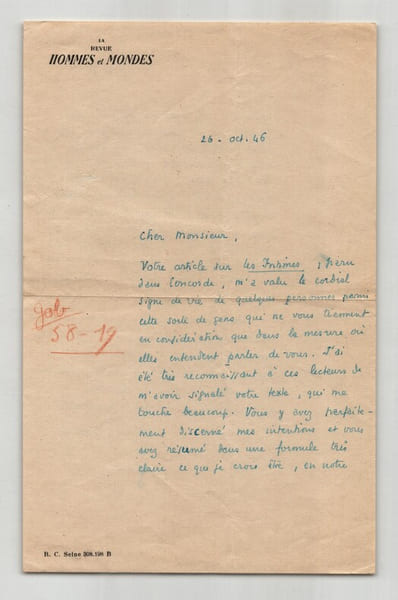 LA
REVUE
HOMMES et MONDES
26 - oct. 46
Cher Monsieur,
Votre article sur Les Intimes, paru
dans Concorde, m'a valu le cordial
signe de vie de quelques personnes parmi
cette sorte de gens qui ne vous tiennent
en considération que dans la mesure où
elles entendent parler de vous. J'ai
été très reconnaissant à ces lecteurs de
m'avoir signalé votre texte, qui me
touche beaucoup. Vous y avez parfaite-
ment discerné mes intentions et vous
avez résumé dans une formule très
claire ce que je crois être, en notre
58-19
R. C. Seine 308.198 B